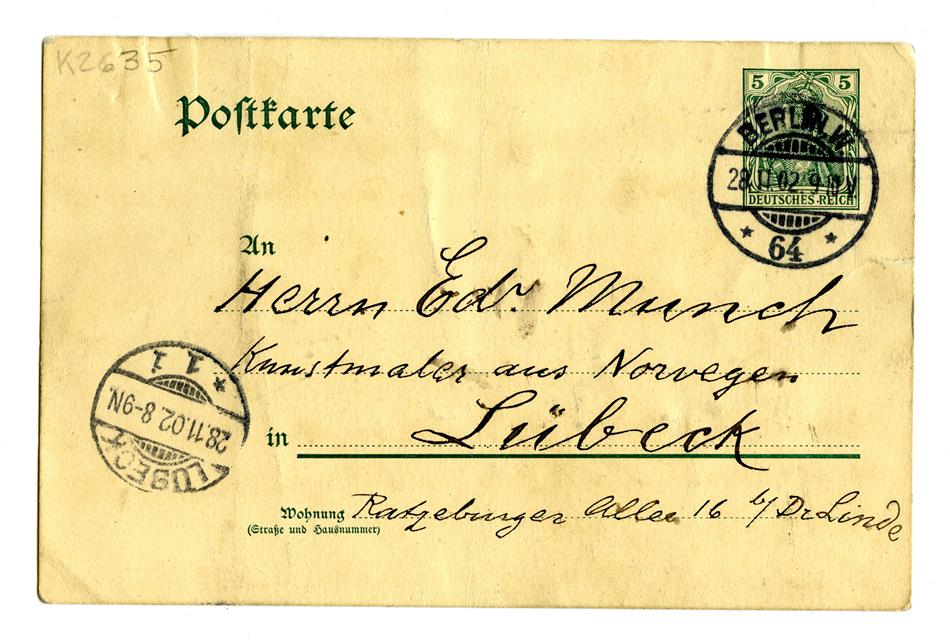 K2635
Postkarte
5 5
BERLIN.W
28.11.02.9-10V
DEUTSCHES-REICH
* 64 *
An
Herrn Edv. Munch
Kunstmaler aus Norwegen
in Lübeck
Wohnung Ratzeburger Allee 16 b/ Dr Linde
(Straße und Hausnummer)
LÜBECK
28.11.02.8-9N.
* 1 1